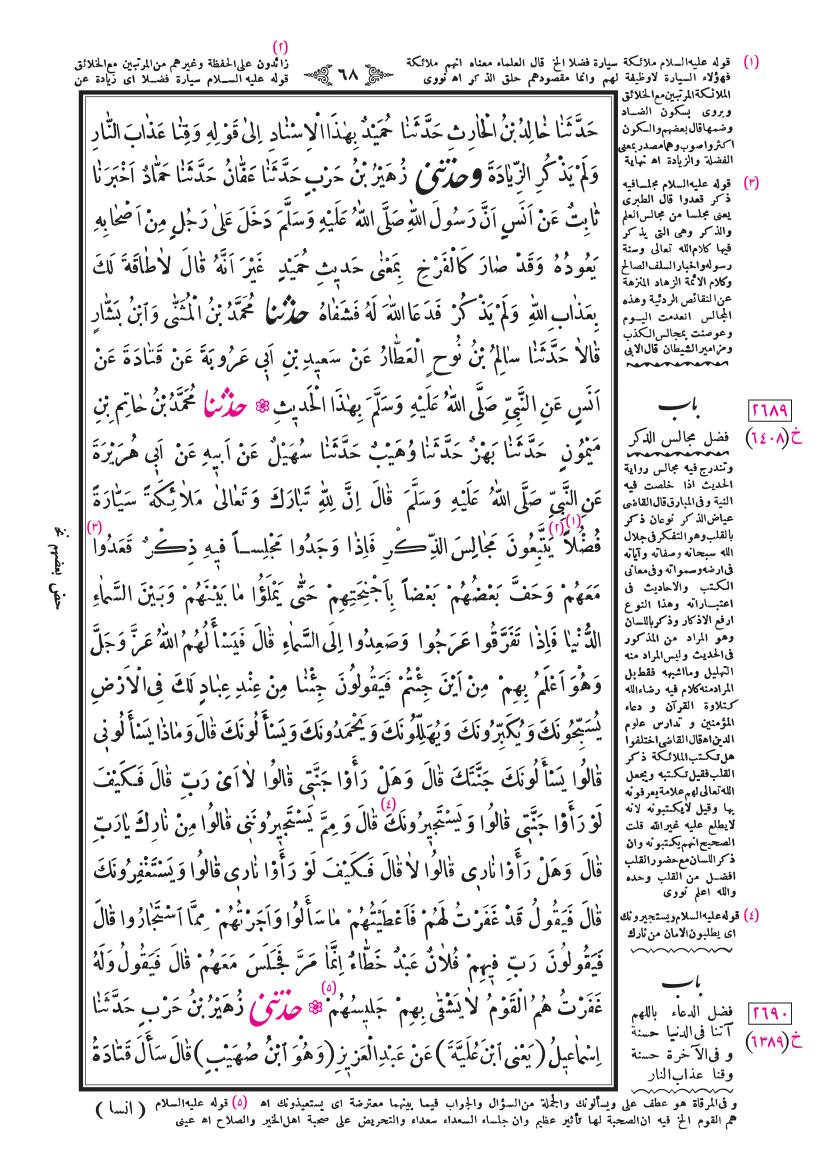 (١) قوله عليه السلام ملائكة سيارة فضلا الخ قال العلماء معناه انهم ملائكة
(٢) زائدون على الحفظة وغيرهم من المرتبين مع الخلائق
٦٨
فهؤلاء السيارة لا وظيفة لهم وانما مقصودهم حلق الذكر اه نووى
قوله عليه السلام سيارة فضلا اى زيادة عن
الملائكة المرتبين مع الخلائق
ويروى بسكون الضاد
وضمها قال بعضهم والسكون
اكثر واصوب وهما مصدر بمعنى
الفضلة والزيادة اه نهاية
(٣) قوله عليه السلام مجلسا فيه
ذكر قعدوا قال الطبرى
يعنى مجلسا من مجالس العلم
والذكر وهى التى يذكر
فيها كلام الله تعالى وسنة
رسوله واخبار السلف الصالح
وكلام الائمة الزهاد المنزهة
عن النقائص الردئية وهذه
المجالس انعدمت اليوم
وعوضت بمجالس الكذب
ومزامير الشيطان قال الابى
باب
فضل مجالس الذكر
٢٦٨٩
خ (٦٤٠٨)
وتندرج فيه مجالس رواية
الحديث اذا خلصت فيه
النية وفى المبارق قال القاضى
عياض الذكر نوعان ذكر
بالقلب وهو التفكر فى جلال
الله سبحانه وصفاته وآياته
فى ارضه وسمواته وفى معانى
الكتب والاحاديث فى
اعتباراته وهذا النوع
ارفع الاذكار وذكر باللسان
وهو المراد من المذكور
فى الحديث وليس المراد منه
التهليل وما اشبهه فقط بل
المراد منه كلام فيه رضاء الله
كتلاوة القرآن و دعاء
المؤمنين و تدارس علوم
الدين اه قال القاضى اختلفوا
هل تكتب الملائكة ذكر
القلب فقيل تكتبه ويجعل
الله تعالى لهم علامة يعرفونه
بها وقيل لا يكتبونه لانه
لا يطلع عليه غير الله قلت
الصحيح انهم يكتبونه وان
ذكر اللسان مع حضور القلب
افضل من القلب وحده
والله اعلم نووى
(٤) قوله عليه السلام ويستجيرونك
اى يطلبون الامان من نارك
باب
فضل الدعاء باللهم
آتنا فى الدنيا حسنة
و فى الآخرة حسنة
وقنا عذاب النار
٢٦٩٠
خ (٦٣٨٩)
حَدَّثَنَا خَالِدُ بْنُ الْحَارِثِ حَدَّثَنَا حُمَيْدٌ بِهٰذَا الْاِسْنَادِ اِلىٰ قَوْلِهِ وَقِنَا عَذَابَ النَّارِ
وَلَمْ يَذْكُرِ الزِّيَادَةَ وحَدَّثَنِى زُهَيْرُ بْنُ حَرْبٍ حَدَّثَنَا عَفَّانُ حَدَّثَنَا حَمَّادٌ اَخْبَرَنَا
ثَابِتٌ عَنْ اَنَسٍ اَنَّ رَسُولَ اللهِ صَلَّى اللهُ عَلَيْهِ وَسَلَّمَ دَخَلَ عَلىٰ رَجُلٍ مِنْ اَصْحَابِهِ
يَعُودُهُ وَقَدْ صَارَ كَالْفَرْخِ بِمَعْنىٰ حَدِيثِ حُمَيْدٍ غَيْرَ اَنَّهُ قَالَ لَا طَاقَةَ لَكَ
بِعَذَابِ اللهِ وَلَمْ يَذْكُرْ فَدَعَا اللهَ لَهُ فَشَفَاهُ حَدَّثَنَا مُحَمَّدُ بْنُ الْمُثَنّٰى وَابْنُ بَشَّارٍ
قَالَا حَدَّثَنَا سَالِمُ بْنُ نُوحٍ الْعَطَّارُ عَنْ سَعِيدِ بْنِ اَبِى عَرُوبَةَ عَنْ قَتَادَةَ عَنْ
اَنَسٍ عَنِ النَّبِيِّ صَلَّى اللهُ عَلَيْهِ وَسَلَّمَ بِهٰذَا الْحَدِيثِ ❁ حَدَّثَنَا مُحَمَّدُ بْنُ حَاتِمِ بْنِ
مَيْمُونٍ حَدَّثَنَا بَهْزٌ حَدَّثَنَا وُهَيْبٌ حَدَّثَنَا سُهَيْلٌ عَنْ اَبِيهِ عَنْ اَبِى هُرَيْرَةَ
عَنِ النَّبِيِّ صَلَّى اللهُ عَلَيْهِ وَسَلَّمَ قَالَ اِنَّ لِلّٰهِ تَبَارَكَ وَتَعَالىٰ مَلَائِكَةً سَيَّارَةً
فُضُلاً (١)(٢) يَتَّبِعُونَ مَجَالِسَ الذِّكْرِ فَاِذَا وَجَدُوا مَجْلِساً فِيهِ ذِكْرٌ قَعَدُوا (٣)
مَعَهُمْ وَحَفَّ بَعْضُهُمْ بَعْضاً بِاَجْنِحَتِهِمْ حَتّٰى يَمْلَؤُا مَا بَيْنَهُمْ وَبَيْنَ السَّمَاءِ
الدُّنْيَا فَاِذَا تَفَرَّقُوا عَرَجُوا وَصَعِدُوا اِلَى السَّمَاءِ قَالَ فَيَسْأَلُهُمُ اللهُ عَزَّ وَجَلَّ
وَهُوَ اَعْلَمُ بِهِمْ مِنْ اَيْنَ جِئْتُمْ فَيَقُولُونَ جِئْنَا مِنْ عِنْدِ عِبَادٍ لَكَ فِى الْاَرْضِ
يُسَبِّحُونَكَ وَيُكَبِّرُونَكَ وَيُهَلِّلُونَكَ وَيَحْمَدُونَكَ وَيَسْأَلُونَكَ قَالَ وَمَاذَا يَسْأَلُونِى
قَالُوا يَسْأَلُونَكَ جَنَّتَكَ قَالَ وَهَلْ رَأَوْا جَنَّتِى قَالُوا لَا اَىْ رَبِّ قَالَ فَكَيْفَ
لَوْ رَأَوْا جَنَّتِى قَالُوا وَيَسْتَجِيرُونَكَ (٤) قَالَ وَمِمَّ يَسْتَجِيرُونَنِى قَالُوا مِنْ نَارِكَ يَا رَبِّ
قَالَ وَهَلْ رَأَوْا نَارِى قَالُوا لَا قَالَ فَكَيْفَ لَوْ رَأَوْا نَارِى قَالُوا وَيَسْتَغْفِرُونَكَ
قَالَ فَيَقُولُ قَدْ غَفَرْتُ لَهُمْ فَاَعْطَيْتُهُمْ مَا سَأَلُوا وَاَجَرْتُهُمْ مِمَّا اسْتَجَارُوا قَالَ
فَيَقُولُونَ رَبِّ فِيهِمْ فُلَانٌ عَبْدٌ خَطَّاءٌ اِنَّمَا مَرَّ فَجَلَسَ مَعَهُمْ قَالَ فَيَقُولُ وَلَهُ
غَفَرْتُ هُمُ الْقَوْمُ لَا يَشْقٰى بِهِمْ جَلِيسُهُمْ (٥) ❁ حَدَّثَنِى زُهَيْرُ بْنُ حَرْبٍ حَدَّثَنَا
اِسْمَاعِيلُ (يَعْنِى ابْنَ عُلَيَّةَ) عَنْ عَبْدِ الْعَزِيزِ (وَهُوَ ابْنُ صُهَيْبٍ) قَالَ سَأَلَ قَتَادَةُ
حض بعضهم نخ
و فى المرقاة هو عطف على ويسألونك والجملة من السؤال والجواب فيما بينهما معترضة اى يستعيذونك اه (٥) قوله عليه السلام
هم القوم الخ فيه ان الصحبة لها تأثير عظيم وان جلساء السعداء سعداء والتحريض على صحبة اهل الخير والصلاح اه عينى
( انسا )